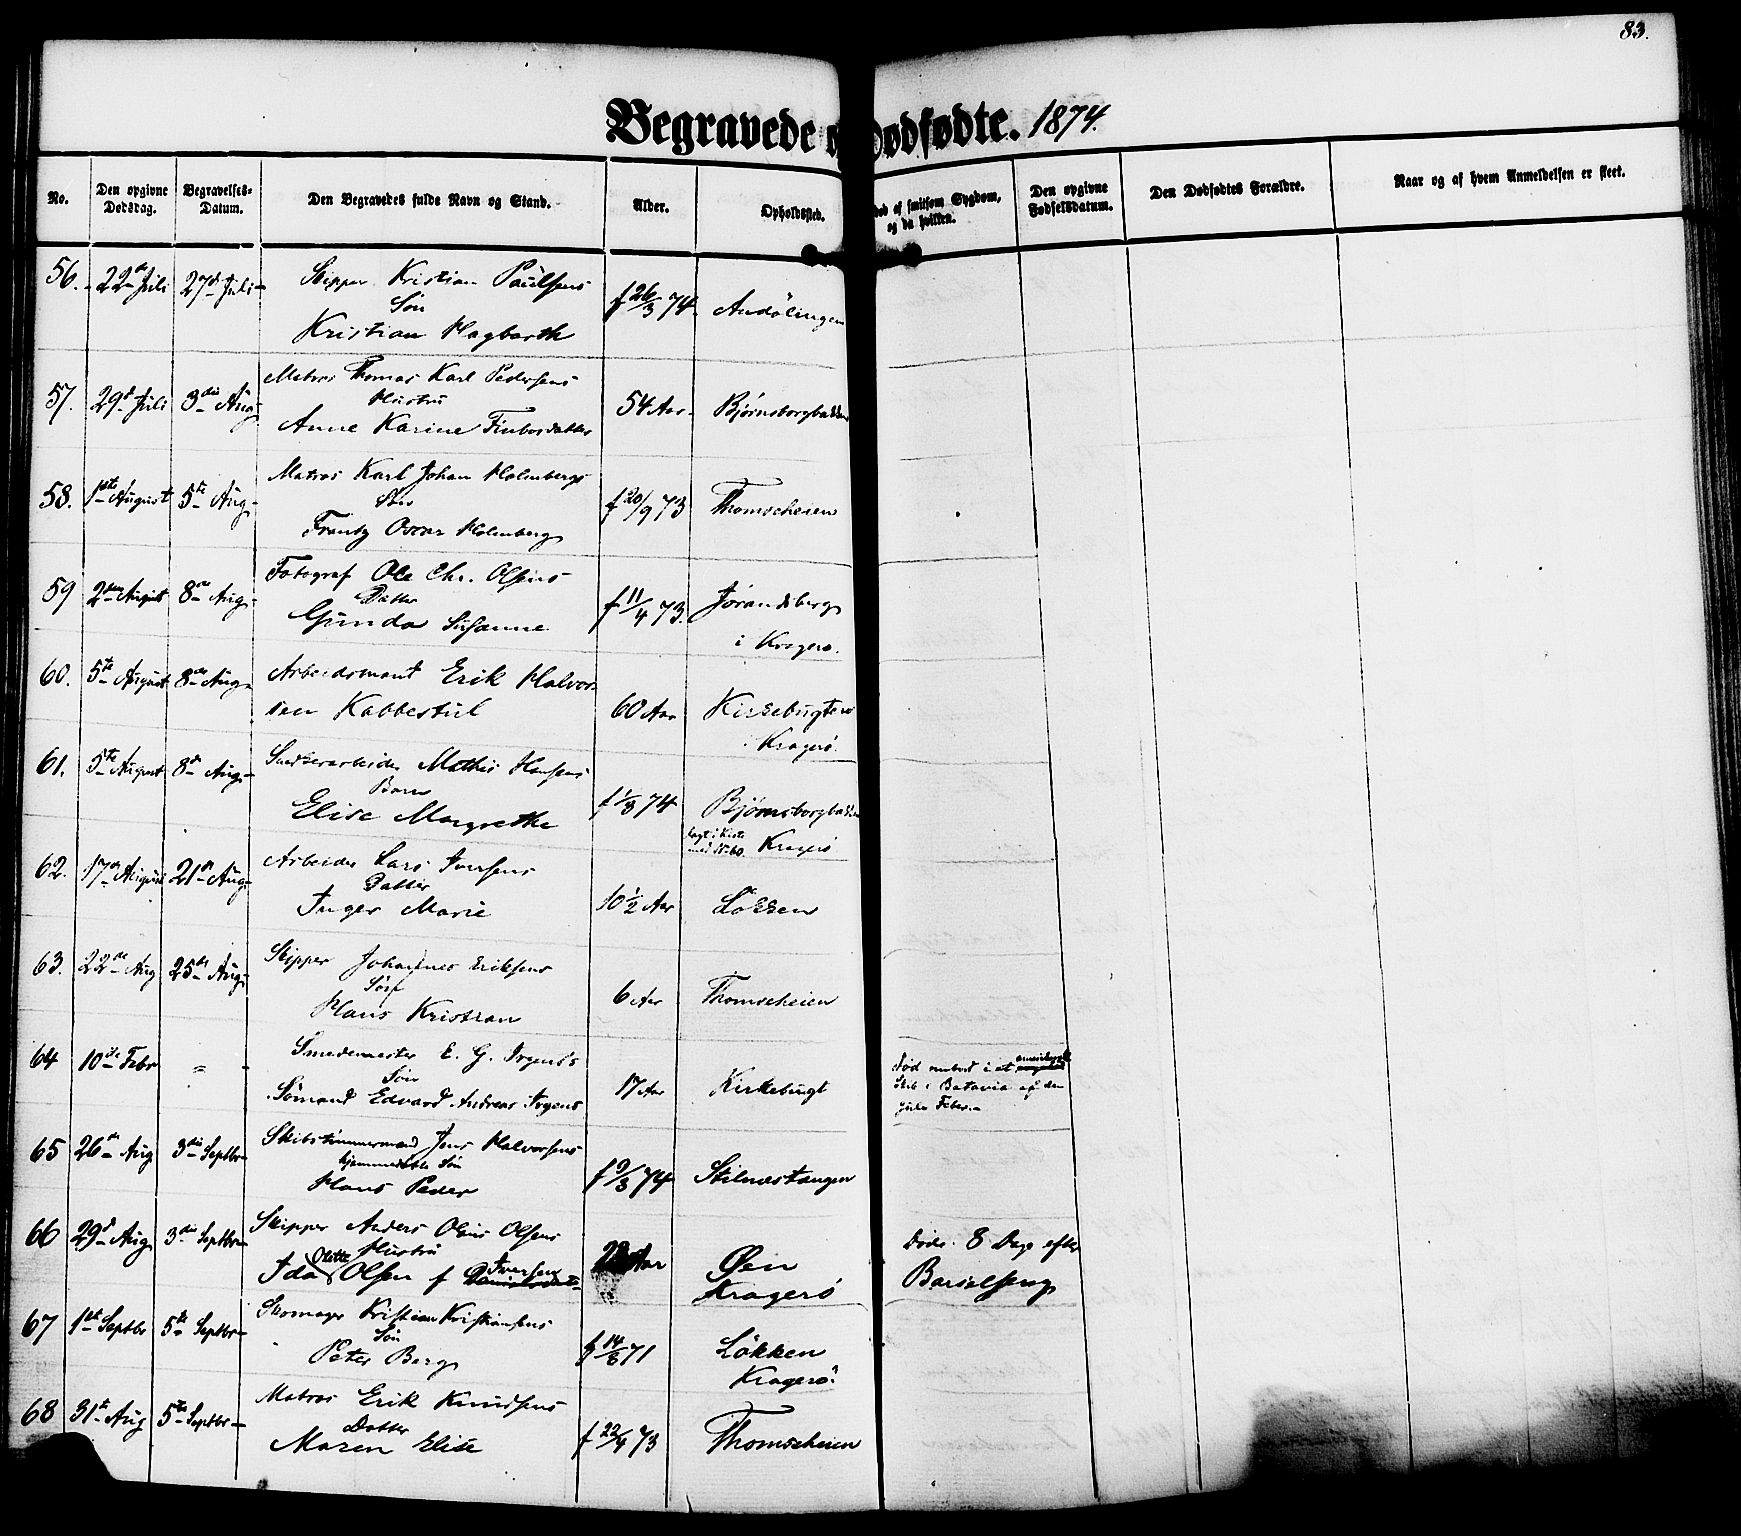 83.
Begravede dødfødte. 1874.
No.
Den opgivne Dødsdag.
Begravelses-Datum.
Den Begravedes fulde Navn og Stand.
Alder.
Opholdssted.
død af smitsom Sygdom, og da hvilken.
Den opgivne Fødselsdatum.
Den Dødfødtes Forældre.
Naar og af hvem Anmeldelsen er skeet.
56. 22de Juli 27de Juli Skipper Kristian Paulsens
Søn
Kristian Hagbarth f 26/3 74
57. 29de Juli 3die Aug Matros Thomas Karl Pedersens
Hustru
Anne Karine 54 Aar. Bjørnsborgbakken
58. 1ste August 5te Aug. Matros Karl Johan Holmbergs
Søn
Frantz Oscar Holmberg f 20/9 73 Thomesheien
59 2den August 8de Aug. Fotograf Ole Chr. Olsens
Datter
Gunda Susanne f 11/4 73. Jørandsberg
i Kragerø.
60. 5te August 8de Aug. Arbeidsmand Erik Halvor-
sen Kabbestul 60 Aar Kirkebugten
Kragerø.
61. 5te August 8de Aug. Snedkerarbeider Mathis Hansens
Barn
Elise Margrethe f 1/3 74 Bjørnsborgbakken
lagt i Kiste
med N: 60. Kragerø
62. 17de August 21de Aug. Arbeider Lars Iversens
Datter
Inger Marie 10 1/2 Aar Løkken
63. 22de Aug 25de Aug. Skipper Johannes Eriksens
Søn
Hans Kristian 6 Aar Thomesheien
64 10de Febr " Smedemester E. G. Irgens's
Søn
Sømand Edvard Andreas Irgens 17 Aar Kirkebugt
Død ombord i et amerikansk
Skib i Batavia af den
gule Feber.
65 26de Aug 3die Septbr Skibstømmermand Jens Halvorsens
hjemmedøbte Søn
Hans Peder f 9/8 74 Stilnæstangen
66 29de Aug. 3die Septbr Skipper Anders Olaus Olsens
Hustru
Ida Olette Olsen f Iversen Aar Øen
Kragerø
Døde 8 Dage efter
Barselseng
67 1ste Septbr 5te Septbr Skomager Kristian Kristiansens
Søn
Peter Berg f 14/8 71 Løkken
Kragerø.
68 31te Aug 5te Septbr Matros Erik Knudsens
Datter
Maren Elise f 22/4 73 Thomesheien